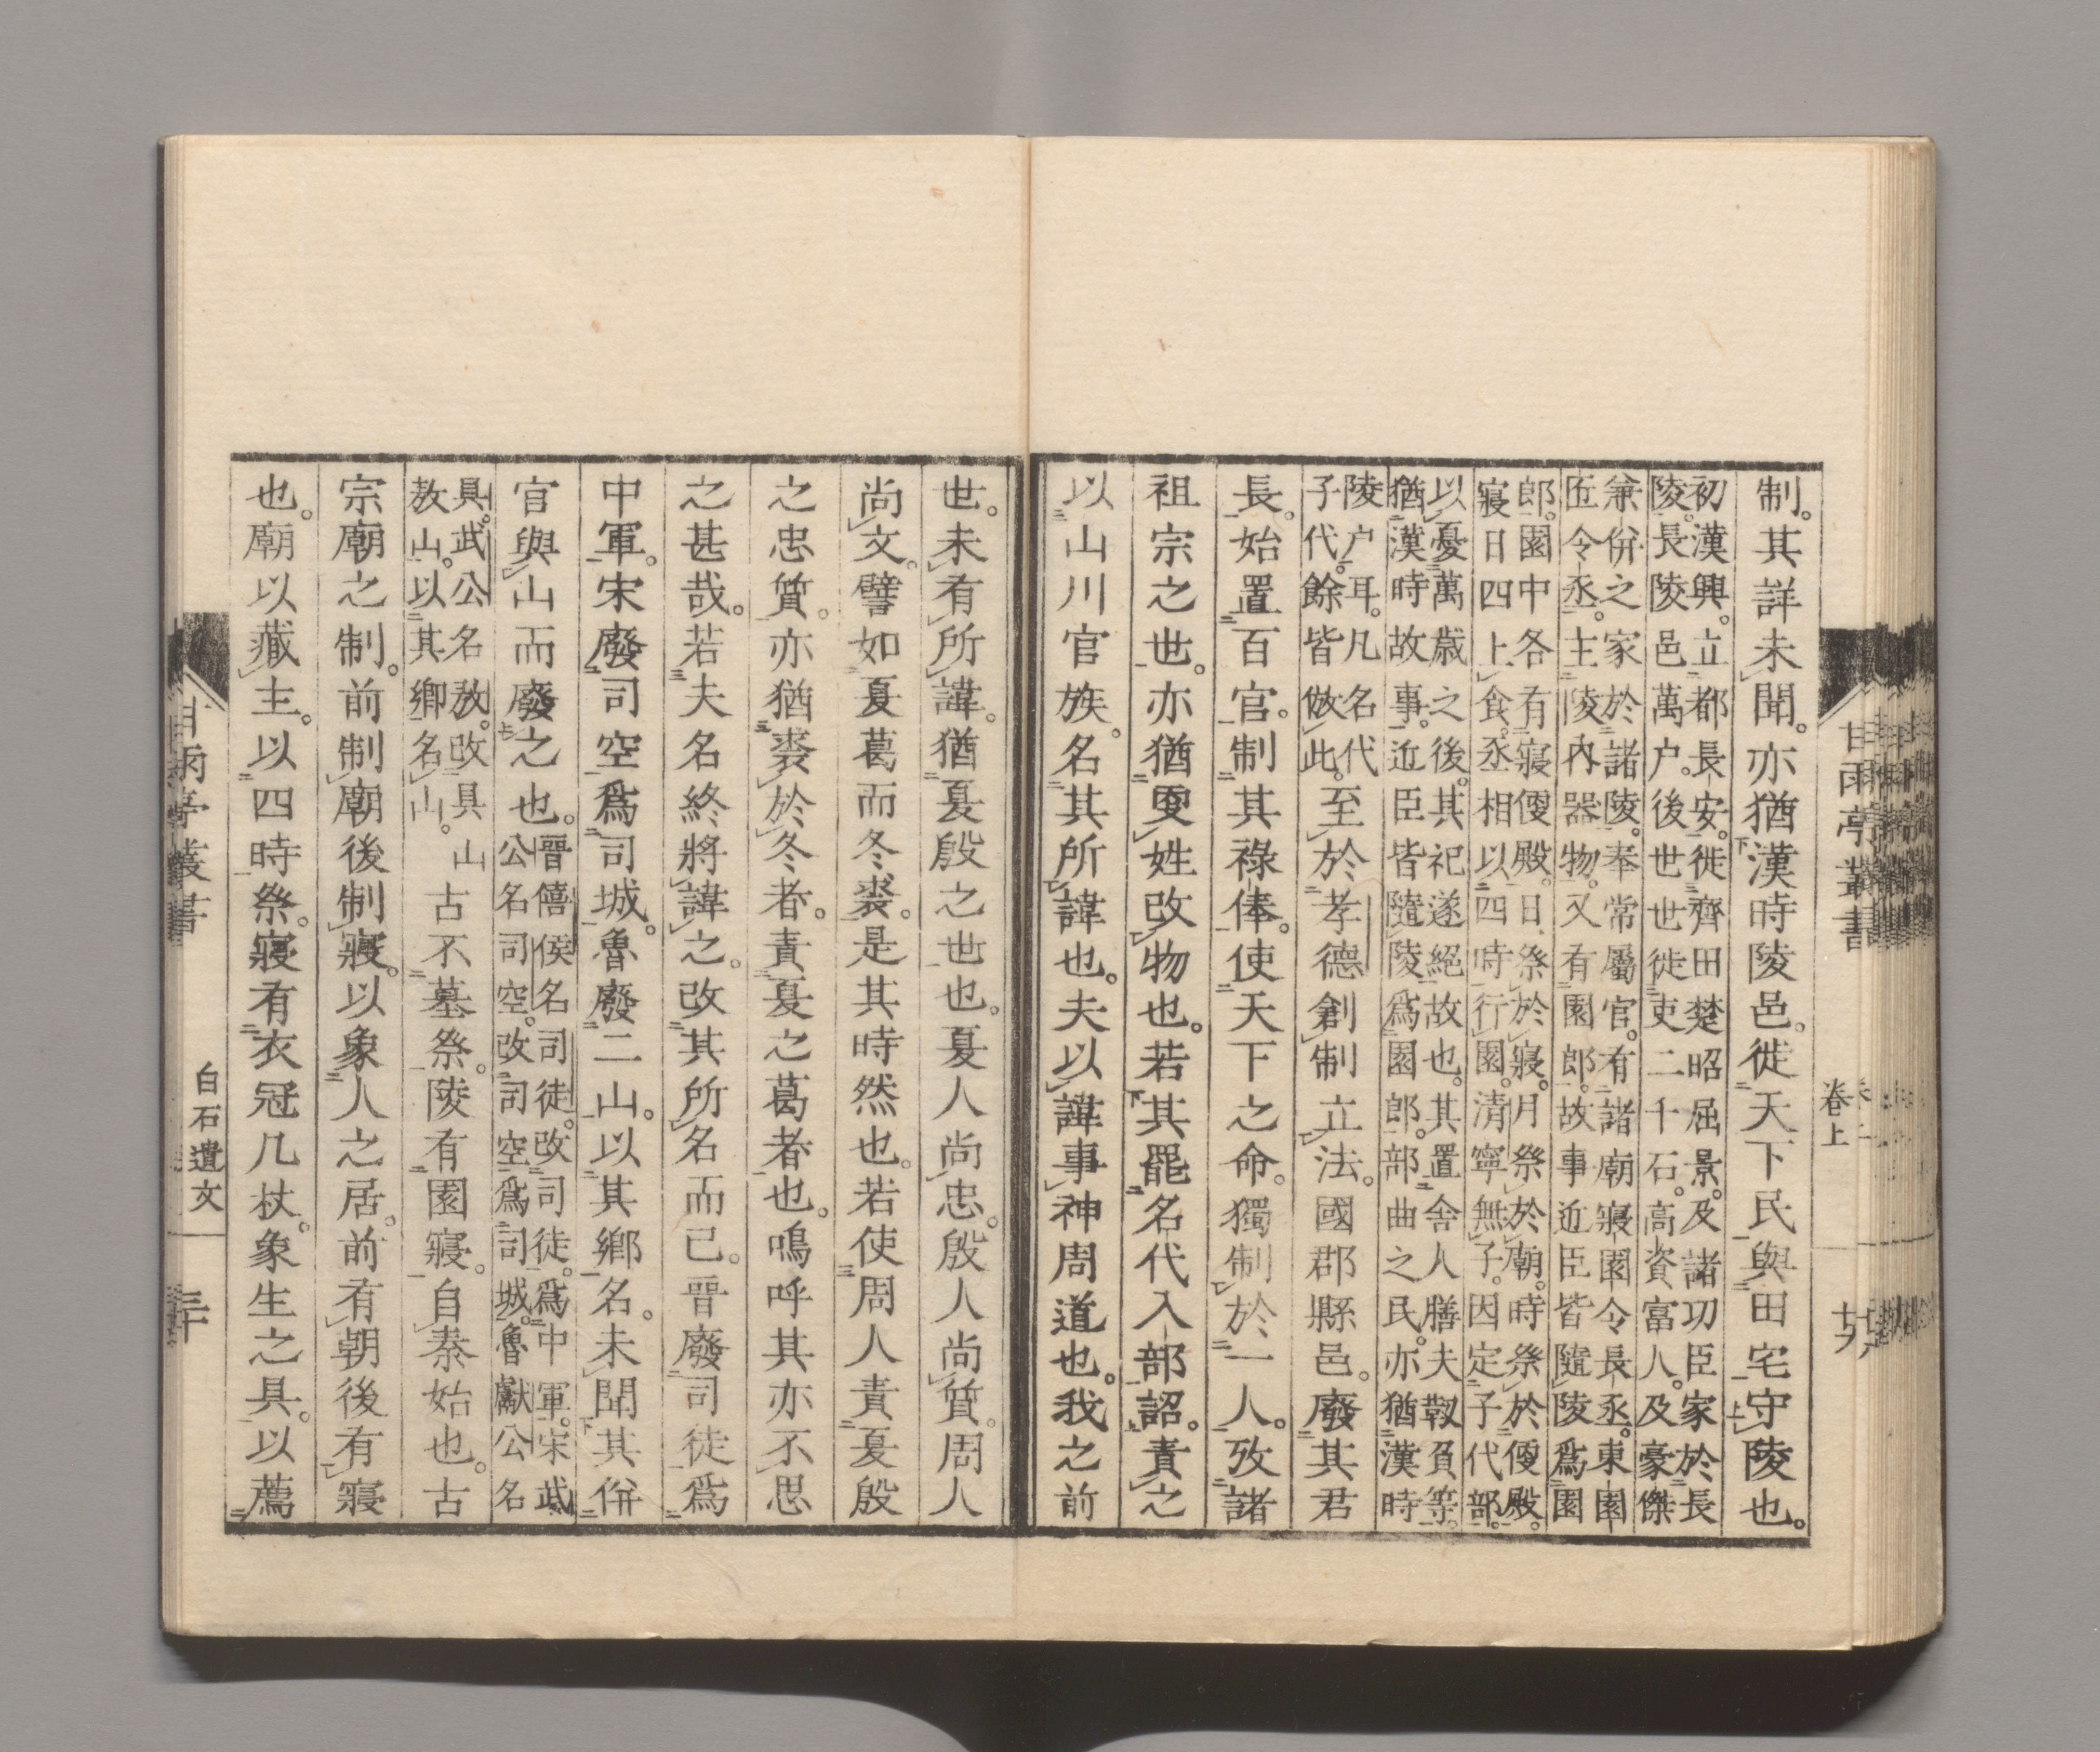 制。其詳未聞。亦猶漢時陵邑。徙天下民與田宅守陵也。
初漢興。立都長安。徙齊田楚昭屈景。及諸功臣家於長
陵。長陵邑萬户。後世世徙吏二千石。高資富人。及豪傑
兼併之家於諸陵。奉常屬官。有諸廟寢園令長丞。東園
匠令丞。主陵內器物。又有園郎。故事近臣皆隨陵爲園
郎。園中各有寢便殿。日祭於寢。月祭於廟。時祭於便殿。
寢日四上食。丞相以四時行園。清寧無子。因定子代部。
以憂萬歲之後。其祀遂絕故也。其置舍人膳夫靱負等。
猶漢時故事。近臣皆隨陵爲園郎。部曲之民。亦猶漢時
陵户耳。凡名代
子代。餘皆倣此。
至於孝德創制立法。國郡縣邑。廢其君
長。始置百官。制其祿俸。使天下之命。獨制於一人。攷諸
祖宗之世。亦猶更姓改物也。若其罷名代入部詔。責之
以山川官族。名其所諱也。夫以諱事神周道也。我之前
世。未有所諱。猶夏殷之世也。夏人尚忠。殷人尚質。周人
尚文。譬如夏葛而冬裘。是其時然也。若使周人責夏殷
之忠質。亦猶裘於冬者。責夏之葛者也。嗚呼其亦不思
之甚哉。若夫名終將諱之。改其所名而已。晉廢司徒爲
中軍。宋廢司空爲司城。魯廢二山。以其鄉名。未聞其併
官與山而廢之也。
晉僖侯名司徒。改司徒。爲中軍。宋武
公名司空。改司空爲司城。魯獻公名
具。武公名敖。改具山
敖山。以其鄉名山。
古不墓祭。陵有園寢。自秦始也。古
宗廟之制。前制廟後制寢。以象人之居。前有朝後有寢
也。廟以藏主。以四時祭。寢有衣冠几杖。象生之具。以薦
甘雨亭叢書
卷上
甘雨亭叢書
白石遺文